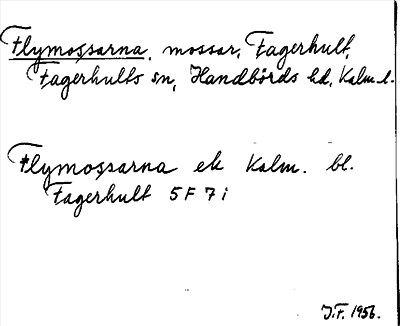 Flymossarna, mossar, Fagerhult,
Fagerhults sn, Handbörds hd, Kalm. l.
Flymossarna ek Kalm. bl.
Fagerhult 5 F 7 i
J.F. 1956.